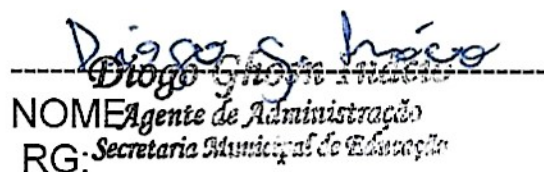 Diogo G. Inácio
Diogo Inácio
NOME Agente de Administração
RG: Secretaria Municipal de Educação